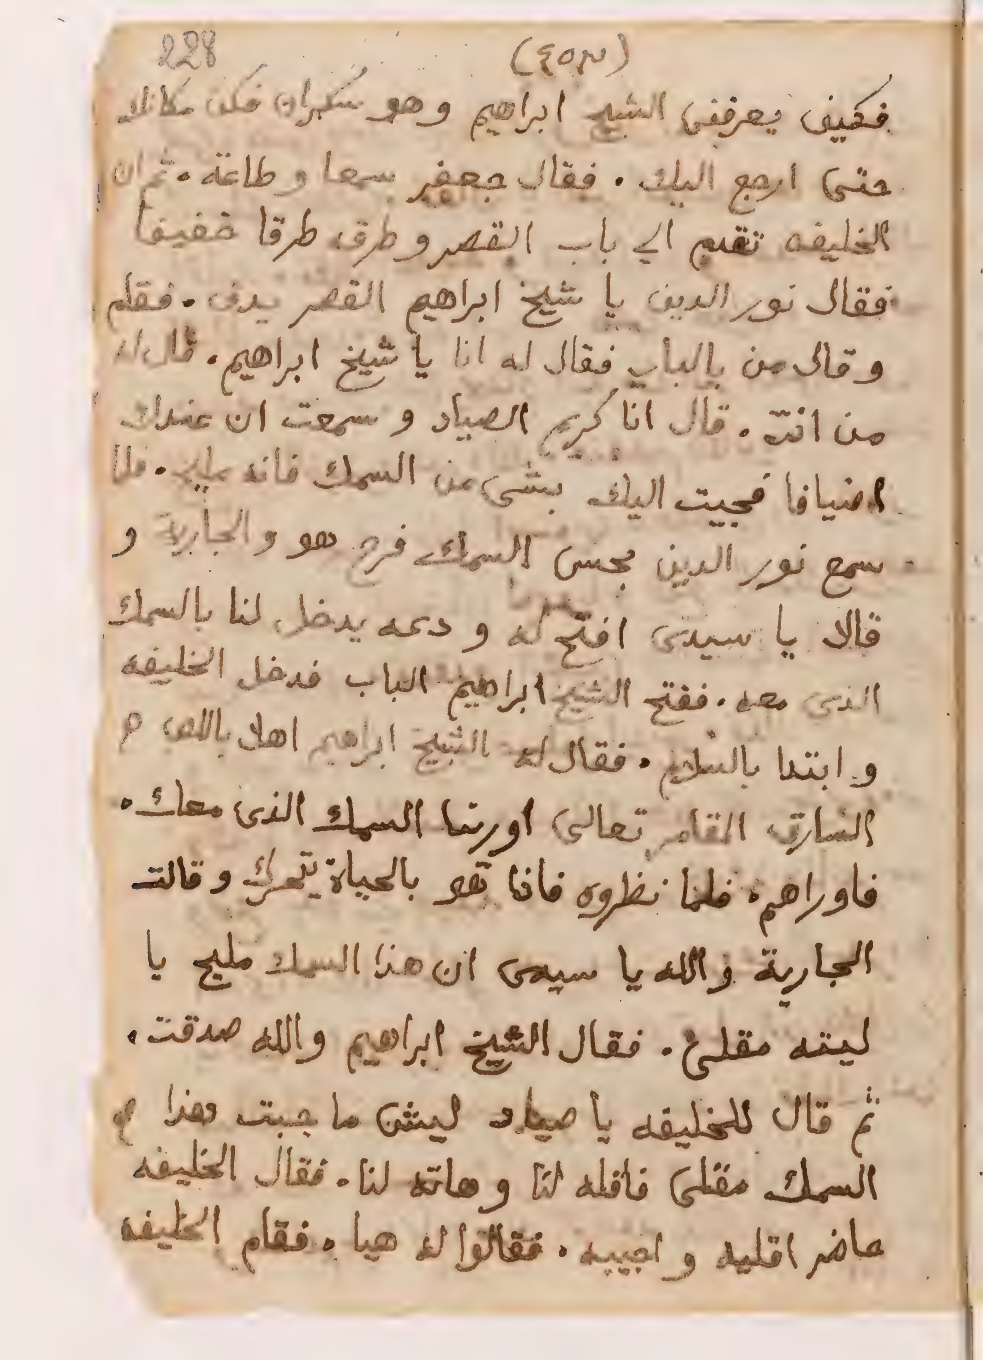 228 (٤٥٣)
فكيف يعرفنى الشيخ ابراهيم وهو سكران فكن مكانك
حتى ارجع اليك . فقال جعفر سمعا و طاعة . ثم ان
الخليفه تقدم الي باب القصر و طرق طرقا خفيفا
فقال نور الدين يا شيخ ابراهيم القصر يدق . فقام
و قال من بالباب فقال له انا يا شيخ ابراهيم . قال له
من انت . قال انا كريم الصياد و سمعت ان عندك
اضيافا فجيت اليك بشى من السمك فانه مليح . فلما
سمع نور الدين بحس السمك فرح هو و الجارية و
قالا يا سيدى افتح له و دعه يدخل لنا بالسمك
الذى معه . ففتح الشيخ ابراهيم الباب فدخل الخليفه
و ابتدا بالسلام . فقال له الشيخ ابراهيم اهلا باللص
السارق المقامر تعالى اورينا السمك الذى معك .
فاوراهم . فلما نظروه فاذا هو بالحياة يتحرك و قالت
الجارية والله يا سيدى ان هذا السمك مليح يا
ليته مقلى . فقال الشيخ ابراهيم والله صدقت .
ثم قال للخليفه يا صياد ليش ما جبت هذا
السمك مقلى فاقله لنا و هاته لنا . فقال الخليفه
حاضر اقليه و اجيبه . فقالوا له هيا . فقام الخليفه